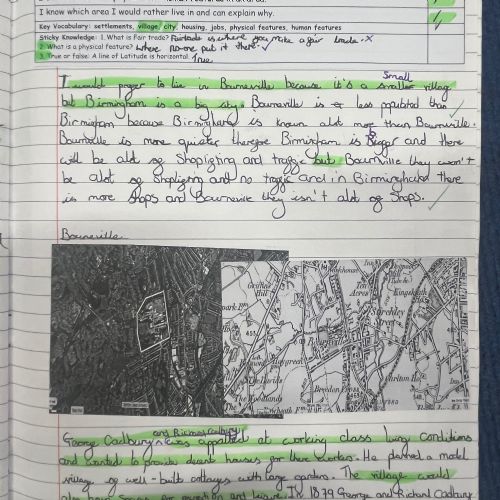 I know which area I would rather live in and can explain why.
Key Vocabulary: settlements, village, city, housing, jobs, physical features, human features
Sticky Knowledge: 1. What is fair trade? Fairtrade is where you make a fair trade. X
2. What is a physical feature? where no one put it there.
3. True or false: A line of Latitude is horizontal. True
Small
I would prefer to live in Bournville because it's a smaller village
but Birmingham is a big city. Bournville is less populated than
Birmingham because Birmingham is known alot more than Bournville.
Bournville is more quieter therefore Birmingham is Bigger and there
will be alot of Shoplifting and traffic but Bournville they won't
be alot of Shoplifting and no traffic and in Birmingham there
is more shops and Bournville they isn't alot of Shops.
Bournville
Griffins Hill
Ten Acres
Kingsheath
Stirchley Street
Bournville
Breedon Cross
The Woodlands
and Richard Cadbury
George Cadbury was appalled at working class living conditions
and wanted to provide decent houses for their workers. He planned a model
village of well-built cottages with large gardens. The village would
also have space for recreation and leisure. In 1879 George and Richard Cadbury